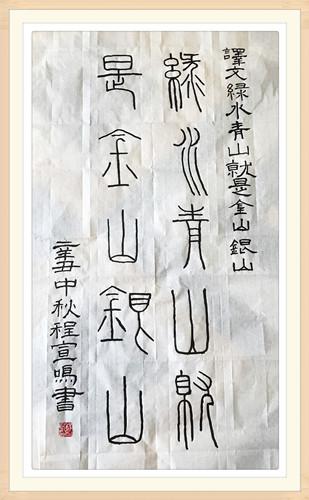 譯文綠水青山就是金山銀山
綠水青山就
是金山銀山
辛丑中秋程宣鳴書